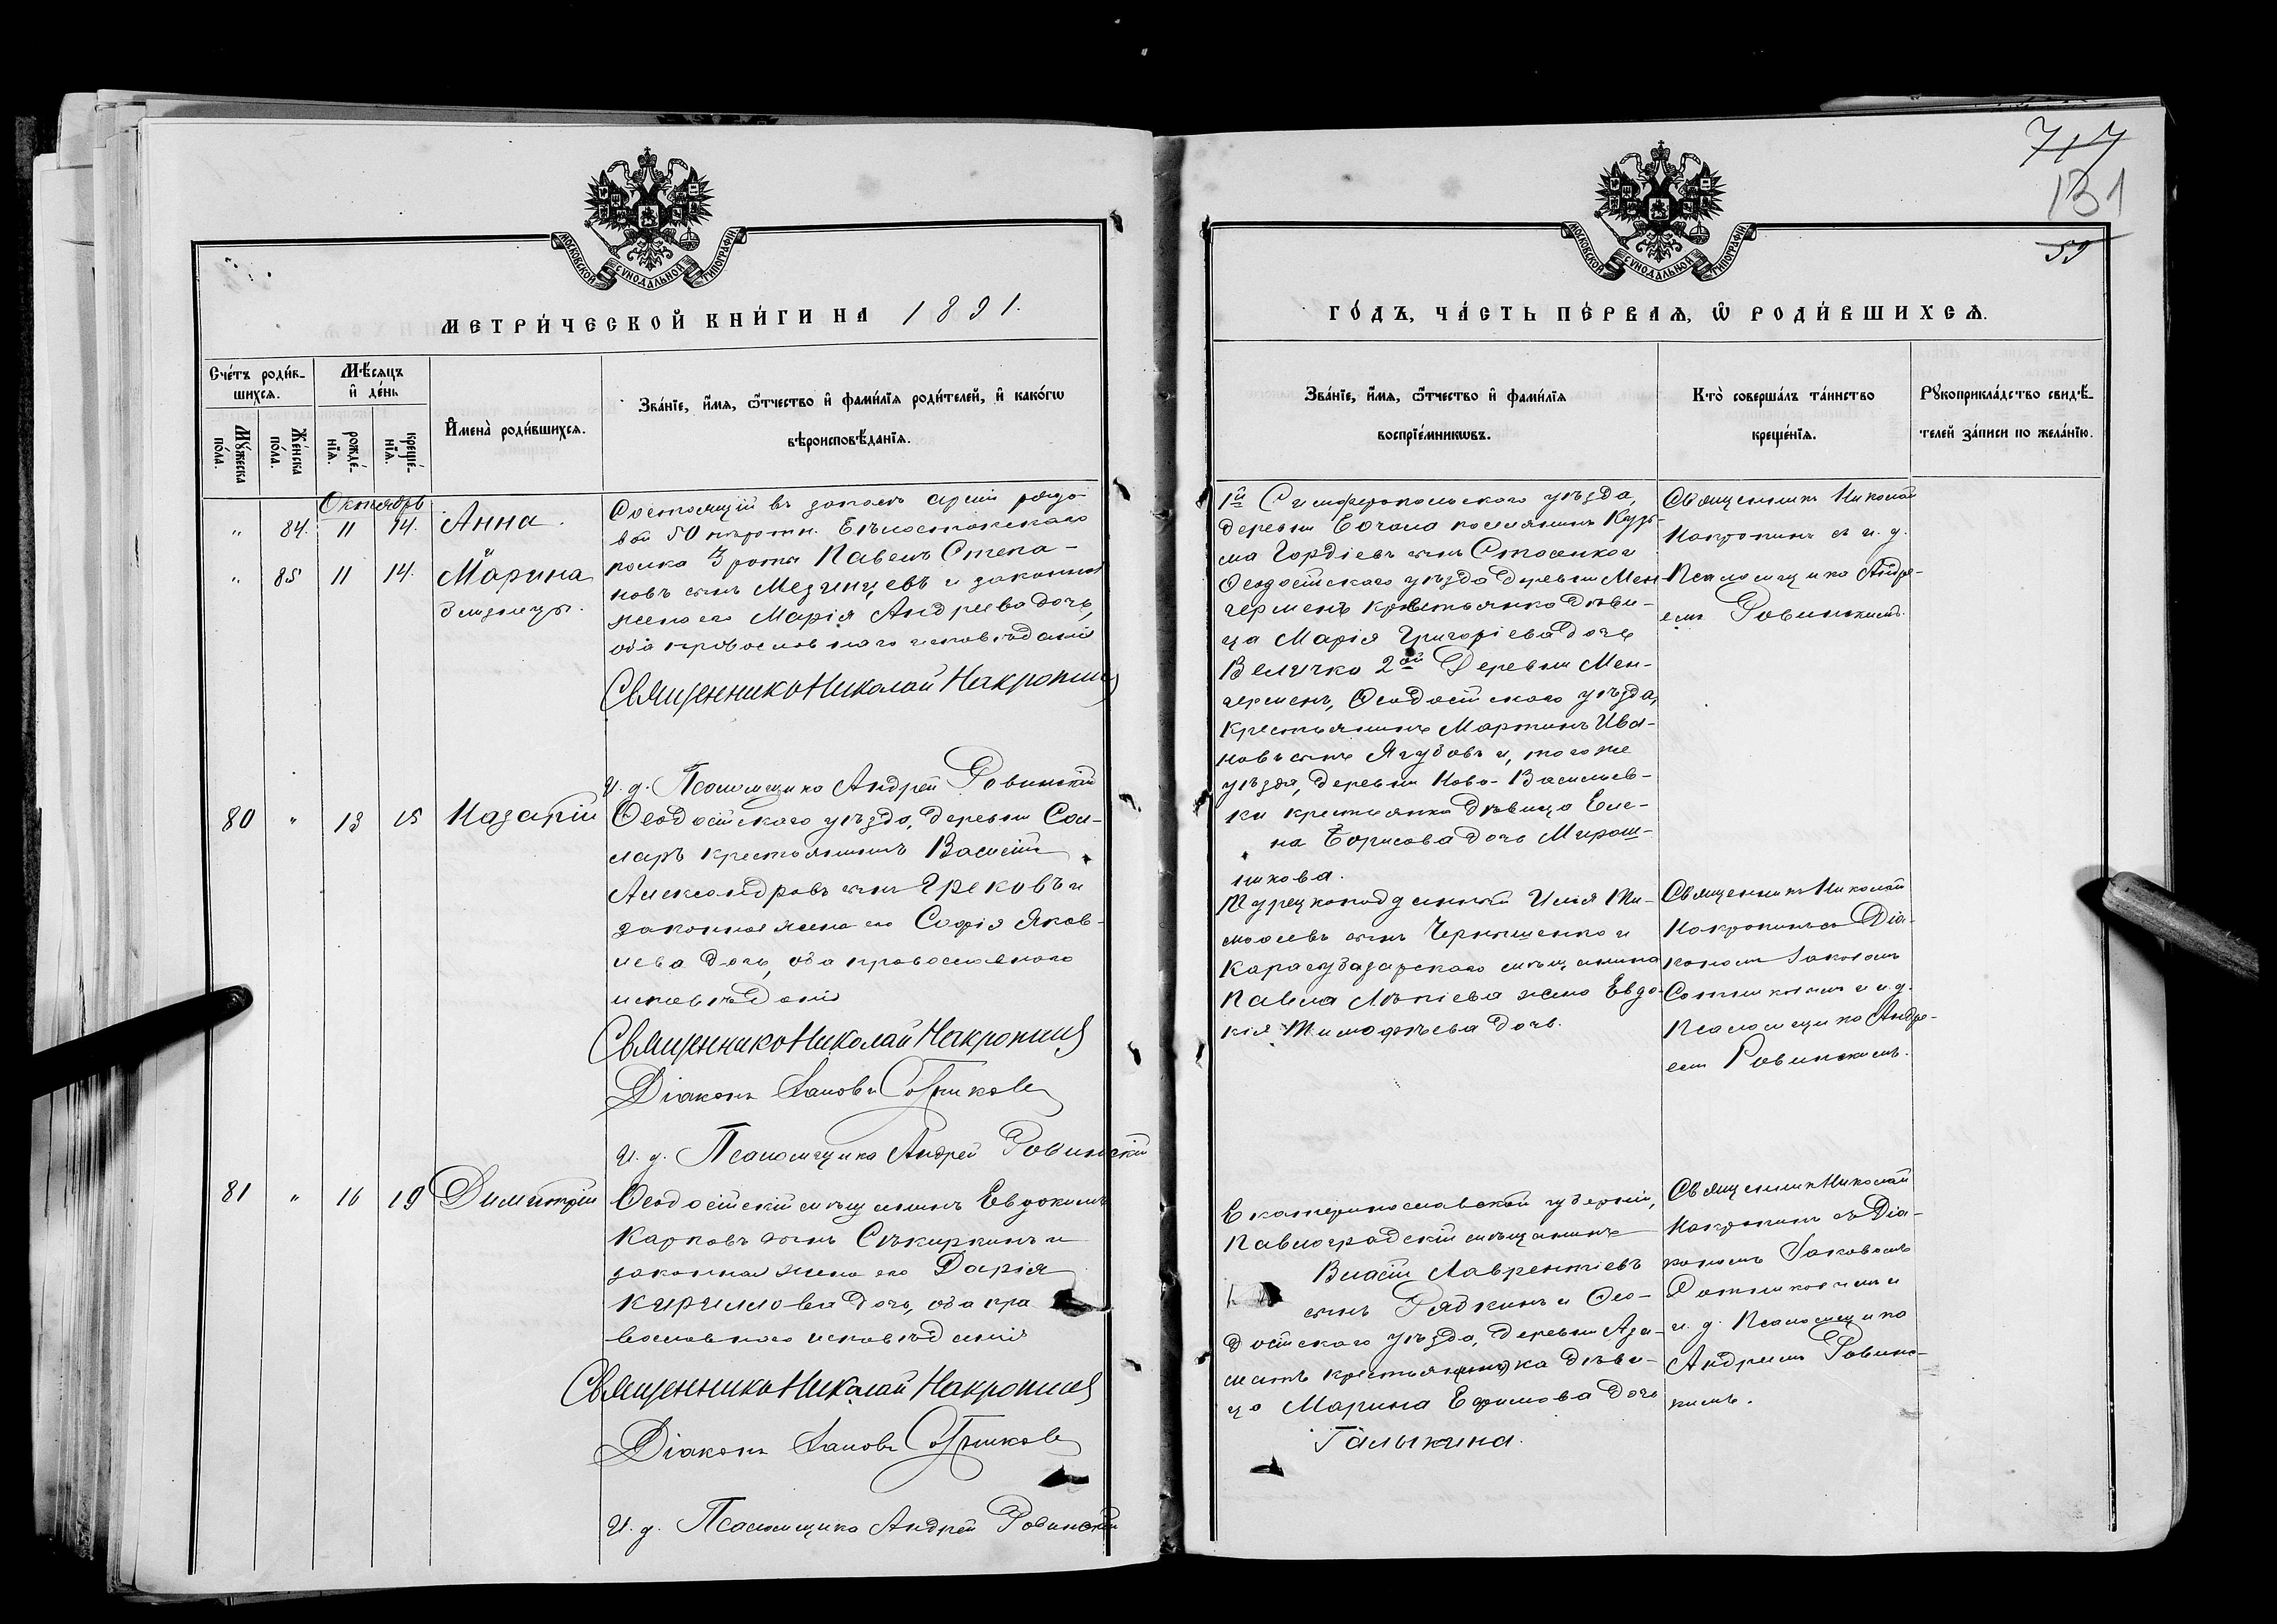 МОСКОВСКОЙ СѴНОДАЛЬНОЙ ТИПОГРАФІИ
МЕТРИ́ЧЕСКОЙ КНИ́ГИ НА 1891.
Сче́тъ роди́в-
шихсѧ.
Мѣ́сѧцъ
и҆ де́нь
Мꙋ́жеска
по́ла.
Же́нска
по́ла.
рожде́-
нїѧ.
креще́-
нїѧ.
И҆мена̀ роди́вшихсѧ.
Зва́нїе, и҆́мѧ, ѻ҆́тчество и҆ фами́лїѧ роди́телей, и҆ како́гѡ
вѣроисповѣ́данїѧ.
Октябрь
" 84. 11 14. Анна.
" 85 11 14. Марина
близнецы.
Состоящій въ запасѣ арміи рядо-
вой 50 пѣхотн. Бѣлостокскаго
полка 3 роты Павелъ Степа-
новъ сынъ Мезинцевъ и законная
жена его Марія Андреева дочь,
оба православнаго исповѣданія
Священникъ Николай Накропинъ
И. д. Псаломщика Андрей Ровинскій
80 " 13 15 Назарій
Ѳеодосійскаго уѣзда, деревни Сал-
ларъ крестьянинъ Василій
Александровъ сынъ Грековъ и
законная жена его Софія Яков-
лева дочь, оба православнаго
исповѣданія
Священникъ Николай Накропинъ
Діаконъ Іаковъ Сотниковъ
И. д. Псаломщика Андрей Ровинскій
81 " 16 19 Димитрій
Ѳеодосійскій мѣщанинъ Евдокимъ
Карповъ сынъ Сѣкиркинъ и
законная жена его Дарія
Кириллова дочь, оба пра
вославнаго исповѣданія
Священникъ Николай Накропинъ
Діаконъ Іаковъ Сотниковъ
И. д. Псаломщика Андрей Ровинскій
717
131
59
МОСКОВСКОЙ СѴНОДАЛЬНОЙ ТИПОГРАФІИ
ГО́ДЪ, ЧА́СТЬ ПЕ́РВАѦ, Ѡ҆ РОДИ́ВШИХСѦ.
Зва́нїе, и҆́мѧ, ѻ҆́тчество и҆ фами́лїѧ
воспрїе́мникѡвъ.
Кто̀ соверша́лъ та́инство
креще́нїѧ.
Рꙋкоприкла́дство свидѣ́-
телей за́писи по жела́нїю.
1й Симферопольскаго уѣзда,
деревни Бочала поселянинъ Кузь-
ма Гордіевъ сынъ Стасенко и
Ѳеодосійскаго уѣзда деревни Мен-
герменъ крестьянка дѣви-
ца Марія Григоріева дочь
Величко 2ой Деревни Мен-
герменъ, Ѳеодосійскаго уѣзда,
крестьянинъ Мартинъ Ива-
новъ сынъ Ягубовъ и, того же
уѣзда, деревни Ново-Васильев-
ки крестьянка дѣвица Еле-
на Борисова дочь Мирош-
никова.
Священникъ Николай
Накропинъ съ и. д.
Псаломщика Андре-
емъ Ровинскимъ.
Турецкоподданный Илія Ти-
моѳеевъ сынъ Чернышенко и
Карасубазарскаго мѣщанина
Павла жена Евдо-
кія Тимофѣева дочь.
Священникъ Николай
Накропинъ съ Діа-
кономъ Іаковомъ
Сотниковымъ и и. д.
Псаломщика Андре-
емъ Ровинскимъ.
Екатеринославской губерніи,
Павлоградскій мѣщанинъ
Власій Лаврентіевъ
сынъ Рядкинъ и Ѳео-
досійскаго уѣзда, деревни Аза-
матъ крестьянка дѣви-
ца Марина Ефимова дочь
Галыкина.
Священникъ Николай
Накропинъ съ Діа-
кономъ Іаковомъ
Сотниковымъ и
и. д. Псаломщика
Андреемъ Ровинс-
кимъ.